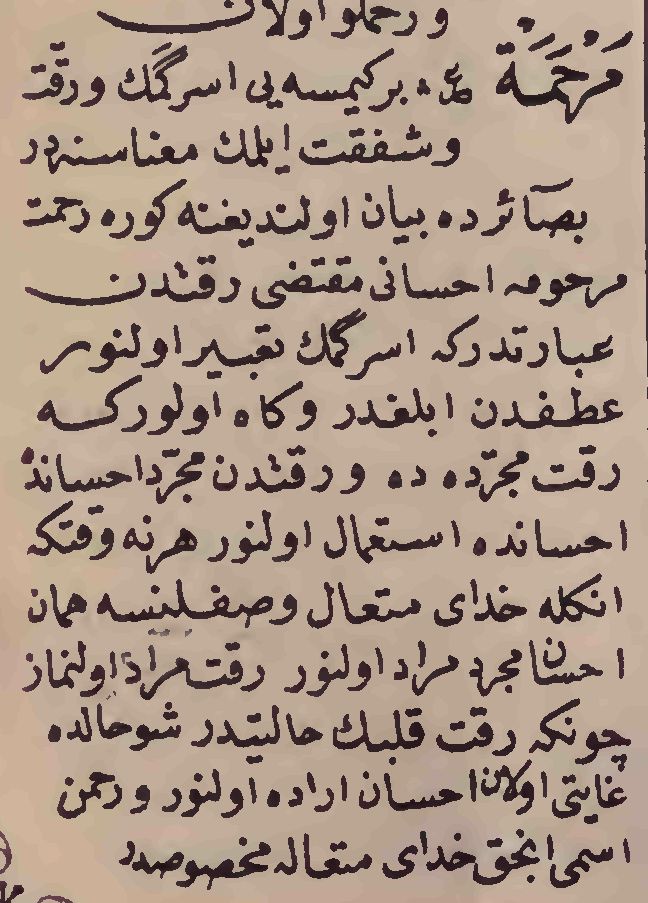 ورحملو اولان
مَرْحَمَةْ ع ه بركيمسه يى اسركمك ورقت
وشفقت ايلمك معناسنه در
بصائرده بيان اولنديغنه كوره رحمت
مرحومه احسانى مقتضى رقتدن
عبارتدركه اسركمك تعبير اولنور
عطفدن ابلغدر وكاه اولوركسه
رقت مجرّده ده ورقتدن مجرّد احسانده
احسانده استعمال اولنور هرنه وقتكه
انكله خداى متعال وصفلنسه همان
احسان مجرد مراد اولنور رقت مراد اولنماز
چونكه رقت قلبك حالتيدر شوحالده
غايتى اولان احسان اراده اولنور ورحمن
اسمى انجق خداى متعاله مخصوصدر